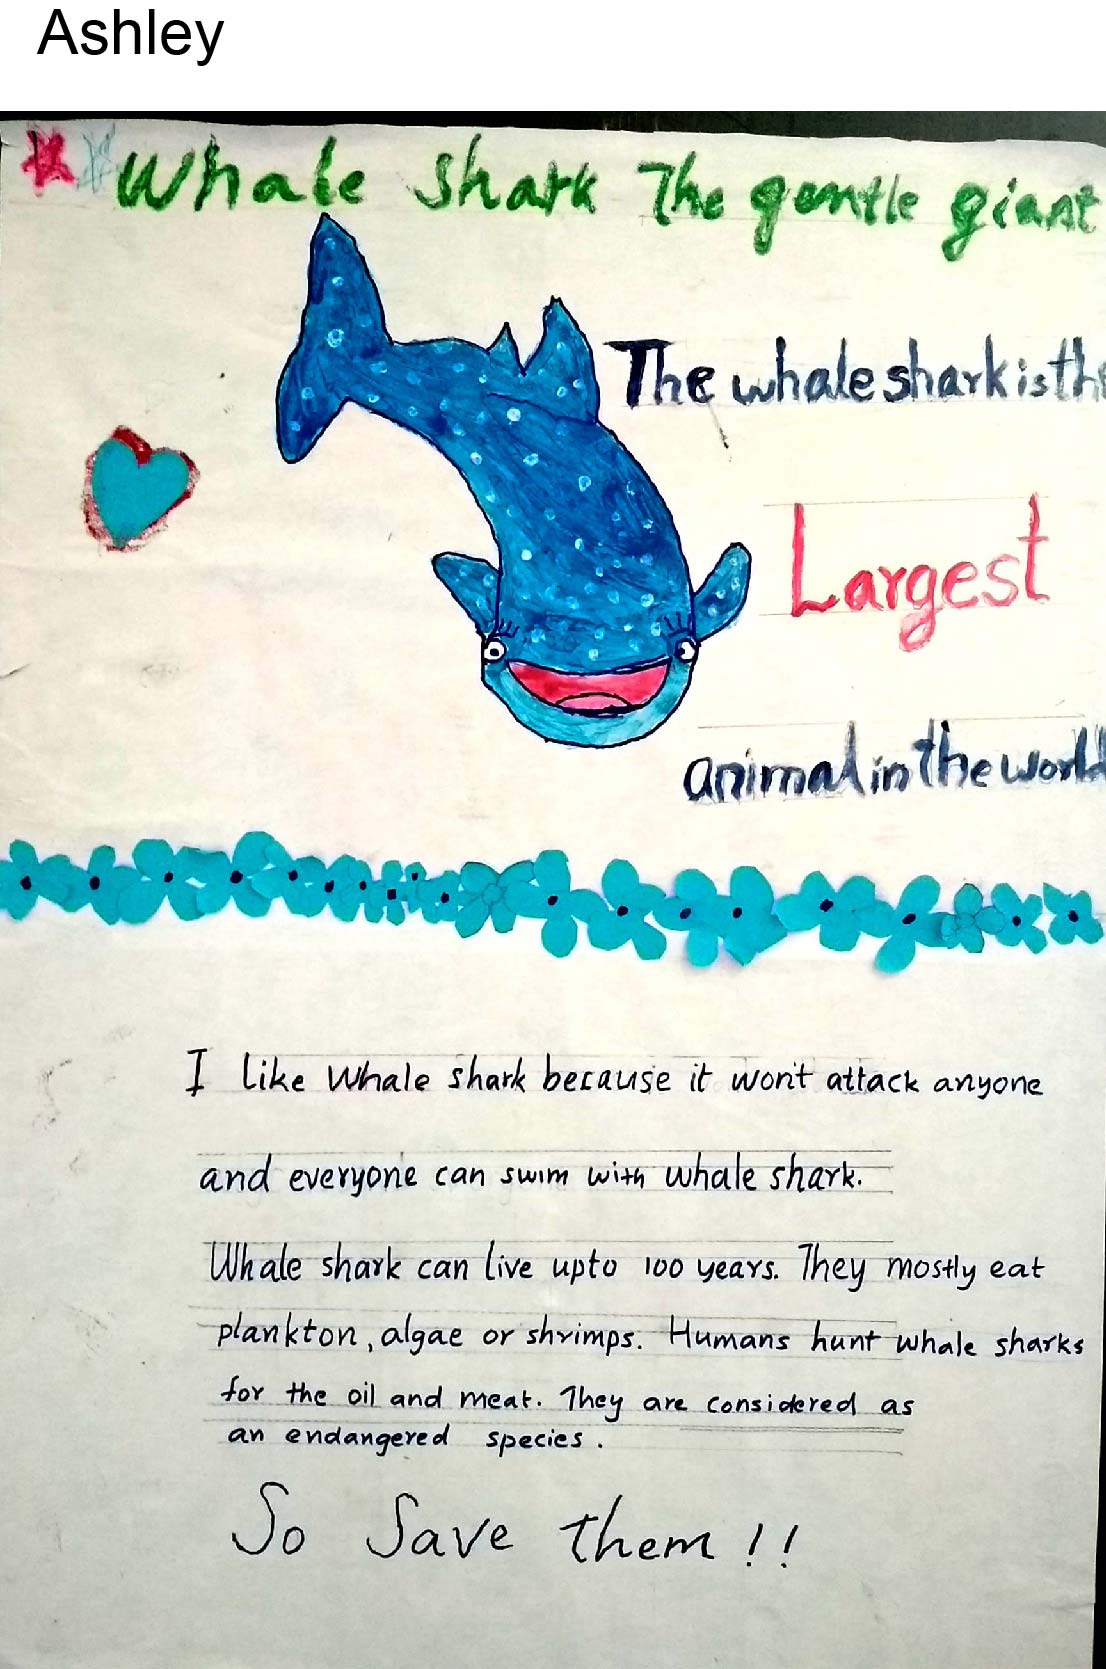 Ashley
Whale shark The gentle giant
The whale shark is the
Largest
animal in the world
I like Whale shark because it won't attack anyone
and everyone can swim with whale shark.
Whale shark can live upto 100 years. They mostly eat
plankton, algae or shrimps. Humans hunt whale sharks
for the oil and meat. They are considered as
an endangered species.
So Save them!!